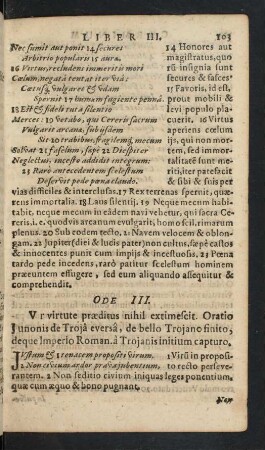 LIBER III. 103
Nec sumit aut ponit 14 secures
Arbitrio popularis 15 aura.
16 Virtus, recludens immeritis mori
Cœlum, negatâ tentat iter viâ:
Cœtusq́ vulgares & udam
Spernit 17 humum fugiente pennâ.
18 Est & fideli tuta silentio
Merces: 19 vetabo, qui Cereris sacrum
Vulgarit arcana, sub iisdem
Sit 20 trabibus, fragilemq́ mecum
Solvat 21 faselum, sæpe 22 Diespiter
Neglectus, incesto addidit integrum:
23 Raro antecedentem scelestum
Deseruit pede pœna claudo.
14 Honores aut
magistratus, quo-
rũ insignia sunt
secures & fasces
15 Favoris, id est,
prout mobili &
levi populo pla-
cuerit. 16 Virtus
aperiens cœlum
ijs, qui non mo-
rerem, sed im-
mortalitaté sunt
meriti, iter patefacit
& sibi & suis per
vias difficiles & interclusas. 17 Res terrenas spernit, quæ-
rens immortalia. 18 Laus silentij. 19 Neque mecum habi-
tabit, neque mecum in eãdem navi vehetur, qui sacra Ce-
reris. i. e. quodvis arcanum evulgarit, homo scil. rimarum
plenus. 20 Sub eodem tecto. 21 Navem velocem & oblon-
gam. 22 Jupiter (diei & lucis pater) non cultus, sæpè castos
& innocentes punit cum impijs & incestuosis. 23 Pœna
tardo pede incedens, rarò patitur scelestum hominem
præeuntem effugere, sed eum aliquando assequitur &
comprehendit.
ODE III.
Vt virtute præditus nihil extimescit. Oratio
Junonis de Trojâ eversâ, de bello Trojano finito,
deque Imperio Roman. à Trojanis initium capturo.
Justum & 1 tenacem propositi virum,
2 Non civium ardor prava jubentium,
1 Virũ in proposi-
to recto perseve-
rantem. 2 Non seditio civium iniquas leges ponentium,
quæ cum æquo & bono pugnant.
Non